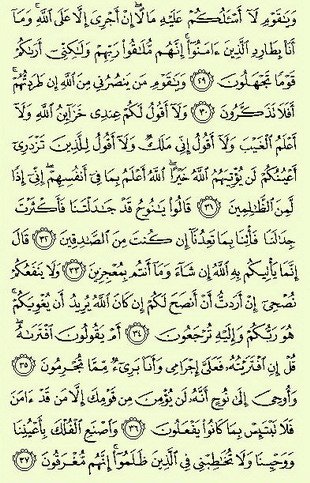 وَيَٰقَوۡمِ لَآ أَسۡـَٔلُكُمۡ عَلَيۡهِ مَالًاۖ إِنۡ أَجۡرِيَ إِلَّا عَلَى ٱللَّهِۚ وَمَآ
أَنَا۠ بِطَارِدِ ٱلَّذِينَ ءَامَنُوٓاْۚ إِنَّهُم مُّلَٰقُواْ رَبِّهِمۡ وَلَٰكِنِّيٓ أَرَىٰكُمۡ
قَوۡمٗا تَجۡهَلُونَ ٢٩ وَيَٰقَوۡمِ مَن يَنصُرُنِي مِنَ ٱللَّهِ إِن طَرَدتُّهُمۡۚ
أَفَلَا تَذَكَّرُونَ ٣٠ وَلَآ أَقُولُ لَكُمۡ عِندِي خَزَآئِنُ ٱللَّهِ وَلَآ
أَعۡلَمُ ٱلۡغَيۡبَ وَلَآ أَقُولُ إِنِّي مَلَكٞ وَلَآ أَقُولُ لِلَّذِينَ تَزۡدَرِيٓ
أَعۡيُنُكُمۡ لَن يُؤۡتِيَهُمُ ٱللَّهُ خَيۡرًاۖ ٱللَّهُ أَعۡلَمُ بِمَا فِيٓ أَنفُسِهِمۡ إِنِّيٓ إِذٗا
لَّمِنَ ٱلظَّٰلِمِينَ ٣١ قَالُواْ يَٰنُوحُ قَدۡ جَٰدَلۡتَنَا فَأَكۡثَرۡتَ
جِدَٰلَنَا فَأۡتِنَا بِمَا تَعِدُنَآ إِن كُنتَ مِنَ ٱلصَّٰدِقِينَ ٣٢ قَالَ
إِنَّمَا يَأۡتِيكُم بِهِ ٱللَّهُ إِن شَآءَ وَمَآ أَنتُم بِمُعۡجِزِينَ ٣٣ وَلَا يَنفَعُكُمۡ
نُصۡحِيٓ إِنۡ أَرَدتُّ أَنۡ أَنصَحَ لَكُمۡ إِن كَانَ ٱللَّهُ يُرِيدُ أَن يُغۡوِيَكُمۡۚ
هُوَ رَبُّكُمۡ وَإِلَيۡهِ تُرۡجَعُونَ ٣٤ أَمۡ يَقُولُونَ ٱفۡتَرَىٰهُۖ
قُلۡ إِنِ ٱفۡتَرَيۡتُهُۥ فَعَلَيَّ إِجۡرَامِي وَأَنَا۠ بَرِيٓءٞ مِّمَّا تُجۡرِمُونَ ٣٥
وَأُوحِيَ إِلَىٰ نُوحٍ أَنَّهُۥ لَن يُؤۡمِنَ مِن قَوۡمِكَ إِلَّا مَن قَدۡ ءَامَنَ
فَلَا تَبۡتَئِسۡ بِمَا كَانُواْ يَفۡعَلُونَ ٣٦ وَٱصۡنَعِ ٱلۡفُلۡكَ بِأَعۡيُنِنَا
وَوَحۡيِنَا وَلَا تُخَٰطِبۡنِي فِي ٱلَّذِينَ ظَلَمُوٓاْ إِنَّهُم مُّغۡرَقُونَ ٣٧